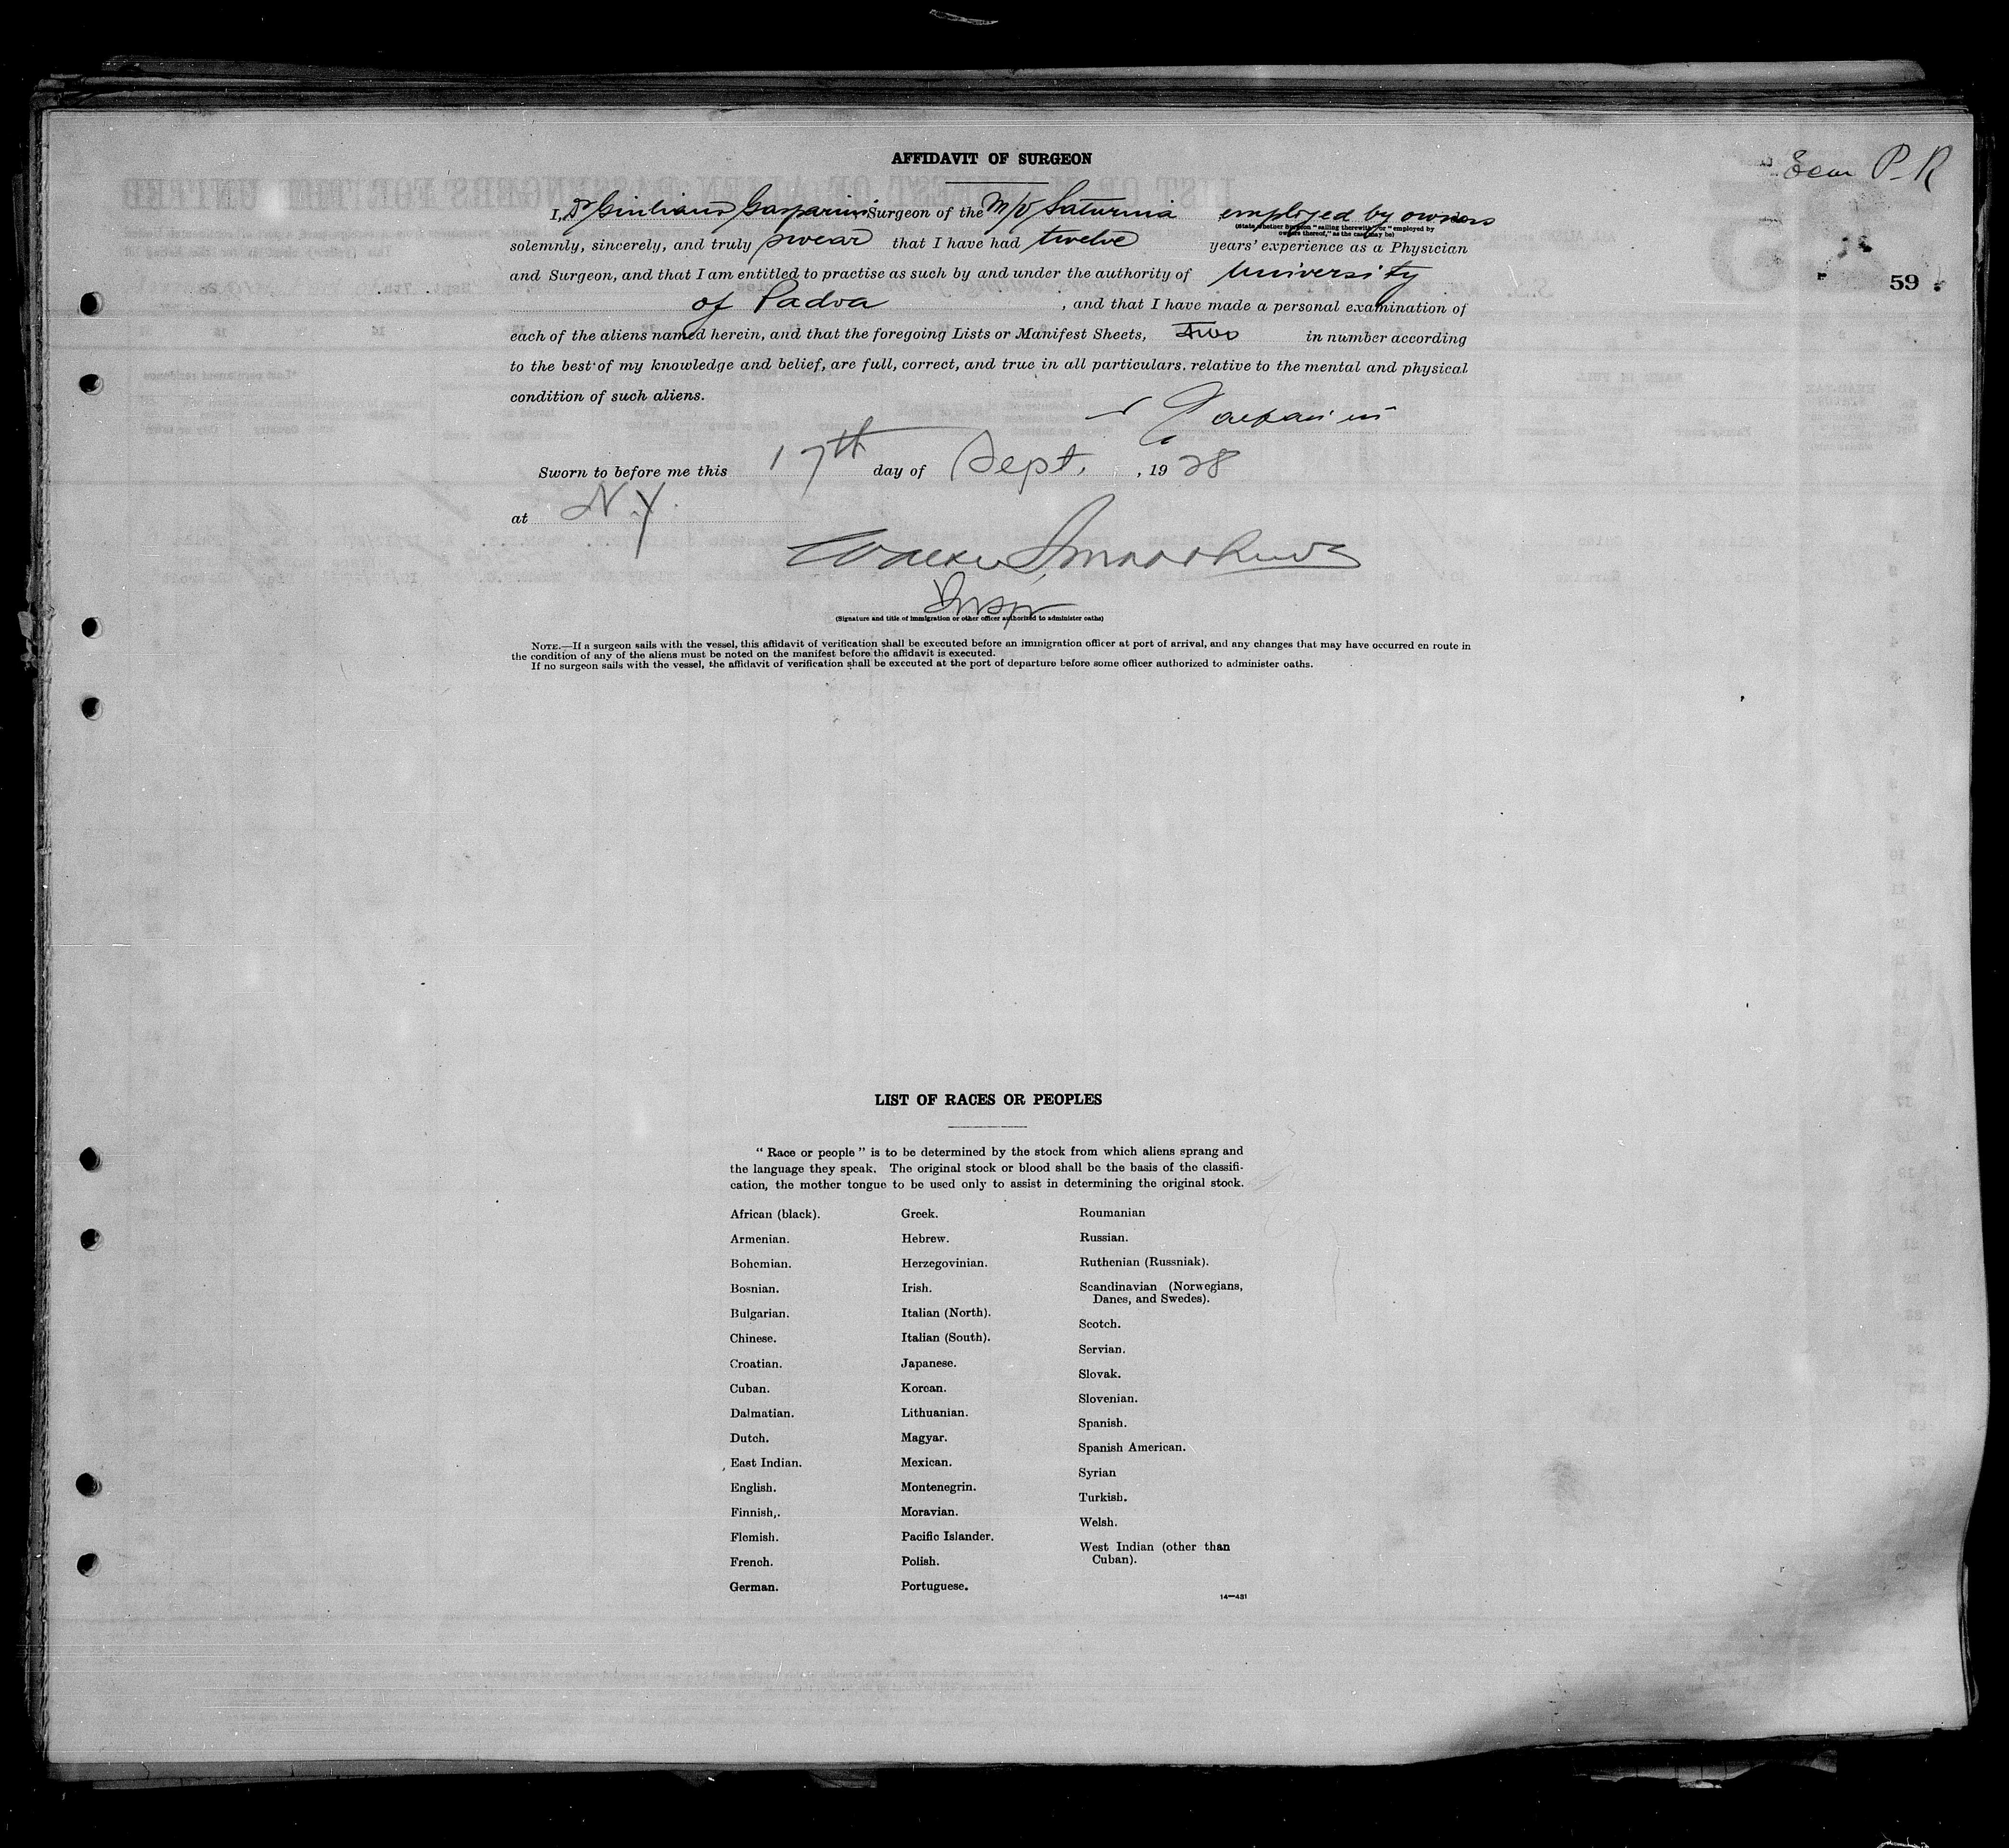 AFFIDAVIT OF SURGEON
P-R
59
I, Dr Giuliano Gasparini Surgeon of the M/V Saturnia employed by owners
(State whether Surgeon "sailing therewith" or "employed by
owners thereof," as the case may be)
solemnly, sincerely, and truly swear that I have had twelve years' experience as a Physician
and Surgeon, and that I am entitled to practise as such by and under the authority of University
of Padva , and that I have made a personal examination of
each of the aliens named herein, and that the foregoing Lists or Manifest Sheets, two in number according
to the best of my knowledge and belief, are full, correct, and true in all particulars. relative to the mental and physical
condition of such aliens.
Gasparini
Sworn to before me this 17th day of Sept. , 19 28
at N.Y.
Inspr
(Signature and title of immigration or other officer authorized to administer oaths)
NOTE.—If a surgeon sails with the vessel, this affidavit of verification shall be executed before an immigration officer at port of arrival, and any changes that may have occurred en route in
the condition of any of the aliens must be noted on the manifest before the affidavit is executed.
If no surgeon sails with the vessel, the affidavit of verification shall be executed at the port of departure before some officer authorized to administer oaths.
LIST OF RACES OR PEOPLES
"Race or people" is to be determined by the stock from which aliens sprang and
the language they speak. The original stock or blood shall be the basis of the classifi-
cation, the mother tongue to be used only to assist in determining the original stock.
African (black).
Armenian.
Bohemian.
Bosnian.
Bulgarian.
Chinese.
Croatian.
Cuban.
Dalmatian.
Dutch.
East Indian.
English.
Finnish,.
Flemish.
French.
German.
Greek.
Hebrew.
Herzegovinian.
Irish.
Italian (North).
Italian (South).
Japanese.
Korean.
Lithuanian.
Magyar.
Mexican.
Montenegrin.
Moravian.
Pacific Islander.
Polish.
Portuguese.
Roumanian
Russian.
Ruthenian (Russniak).
Scandinavian (Norwegians,
Danes, and Swedes).
Scotch.
Servian.
Slovak.
Slovenian.
Spanish.
Spanish American.
Syrian
Turkish.
Welsh.
West Indian (other than
Cuban).
14—431